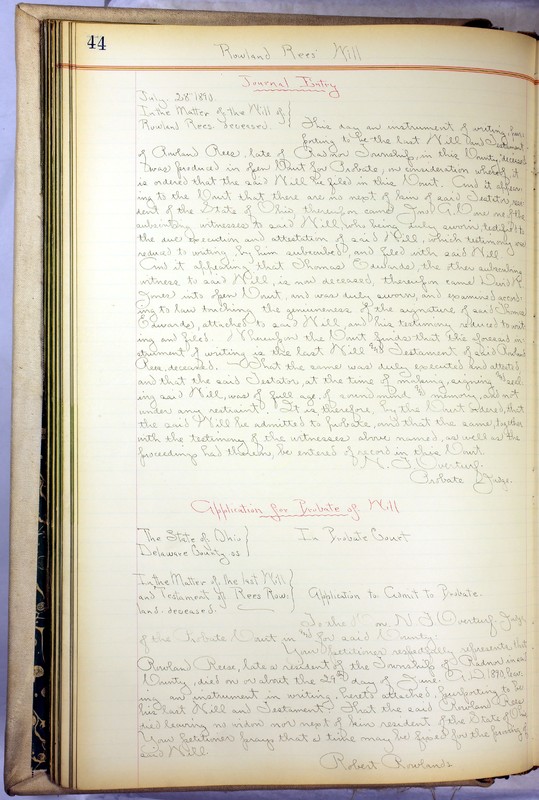 44
Rowland Rees' Will
Journal Entry
July. 28. 1890.
In the Matter of the Will of
Rowland Rees. deceased.
This day an instrument of writing, pur-
porting to be the last Will and Testament
of Rowland Rees, late of Radnor Township, in this County, deceased
was produced in open Court for Probate, on consideration whereof, it
is ordered that the said Will be filed in this Court. And it appear-
ing to the Court that there are no next of kin of said Testator, resi-
dent of the State of Ohio, thereupon came one of the
subscribing witnesses to said Will, who being duly sworn, testified to
the due execution and attestation of said Will, which testimony was
reduced to writing, by him subscribed, and filed with said Will
And it appearing that Thomas Edwards, the other subscribing
witness to said Will, is now deceased, thereupon came David
Jones into open Court, and was duly sworn, and examined accord-
ing to law touching the genuineness of the signature of said Thomas
Edwards, attached to said Will, and his testimony reduced to writ-
ing and filed. Whereupon the Court finds that the aforesaid in-
strument of writing is the last Will and Testament of said Rowland
Rees, deceased. That the same was duly executed and attested
and that the said Testator, at the time of making, signing and seal-
ing said Will, was of full age, of sound mind & memory, and not
under any restraint. It is, therefore, by the Court ordered, that
the said Will be admitted to probate, and that the same, together
with the testimony of the witnesses above named, as well as the
proceedings had therein, be entered of record in this Court
N. F. Overturf.
Probate Judge.
Application for Probate of Will
The State of Ohio
Delaware County ss
In Probate Court
In the Matter of the last Will
and Testament of Rees Row-
land. deceased.
Application to Admit to Probate.
To the Hon. N. F. Overturf. Judge.
of the Probate Court in and for said County:
Your petitioner respectfully represents, that
Rowland Reese, late a resident of the Township of Radnor in said
County, died on or about the 29th day of June. A.D. 1890, leav-
ing an instrument in writing, hereto attached, purporting to be
his last Will and Testament. That the said Rowland Rees
died leaving no widow nor next of kin resident of the State of Ohio
Your petitioner prays that a time may be fixed for the proving of
said Will.
Robert Rowlands